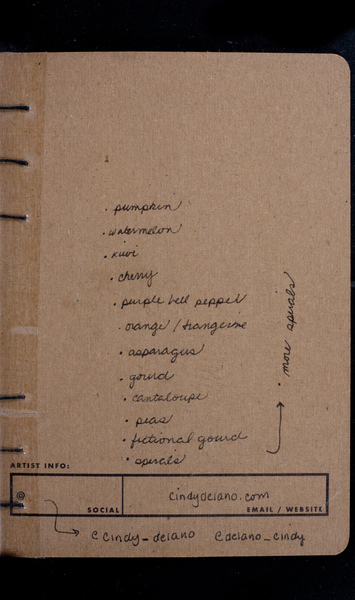 · pumpkin
· watermelon
· kiwi
· cherry
· purple bell pepper
· orange / trangerine
· asparagus
· gourd
· cantaloupe
· peas
· fictional gourd
· spirals
· more spirals
ARTIST INFO:
@
SOCIAL
cindydelano.com
EMAIL / WEBSITE
@cindy_delano @delano_cindy